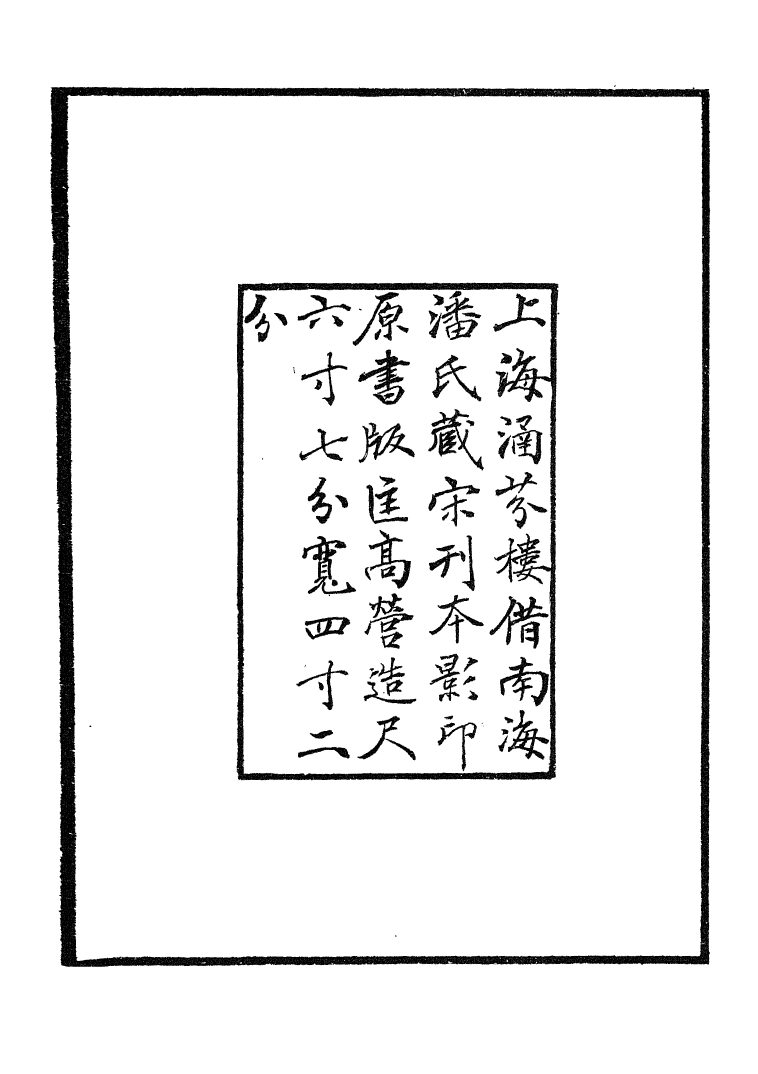 上海涵芬樓借南海
潘氏藏宋刊本影印
原書版匡高營造尺
六寸七分寬四寸二
分